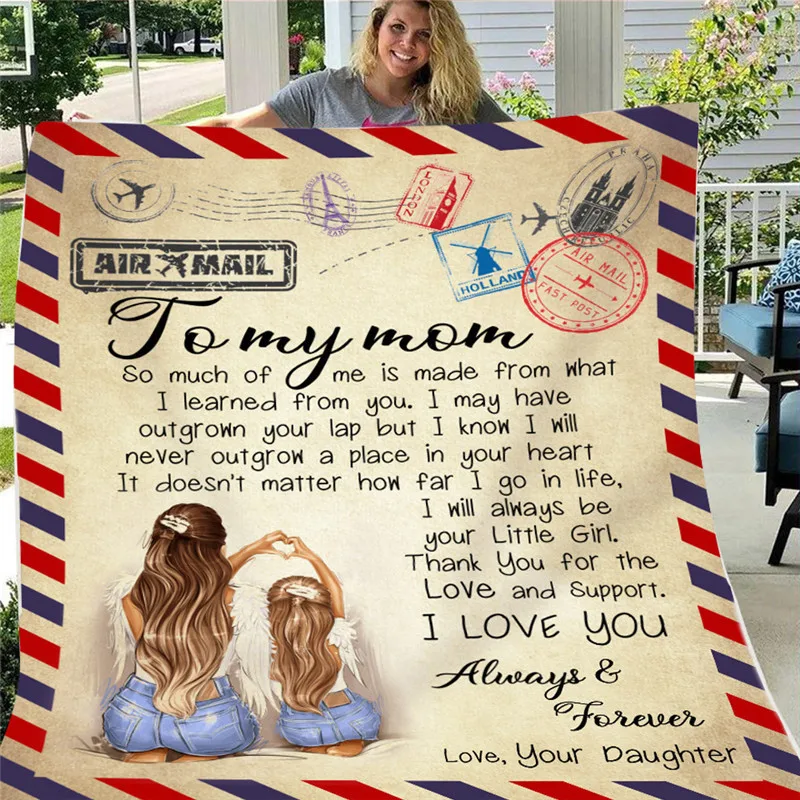 PRAHA
LONDON
FRANCE
HOLLAND
AIR MAIL
FAST POST
AIR MAIL
To my mom
So much of me is made from what
I learned from you. I may have
outgrown your lap but I know I will
never outgrow a place in your heart
It doesn't matter how far I go in life,
I will always be
your Little Girl.
Thank You for the
Love and Support.
I LOVE YOU
Always &
Forever
Love, Your Daughter